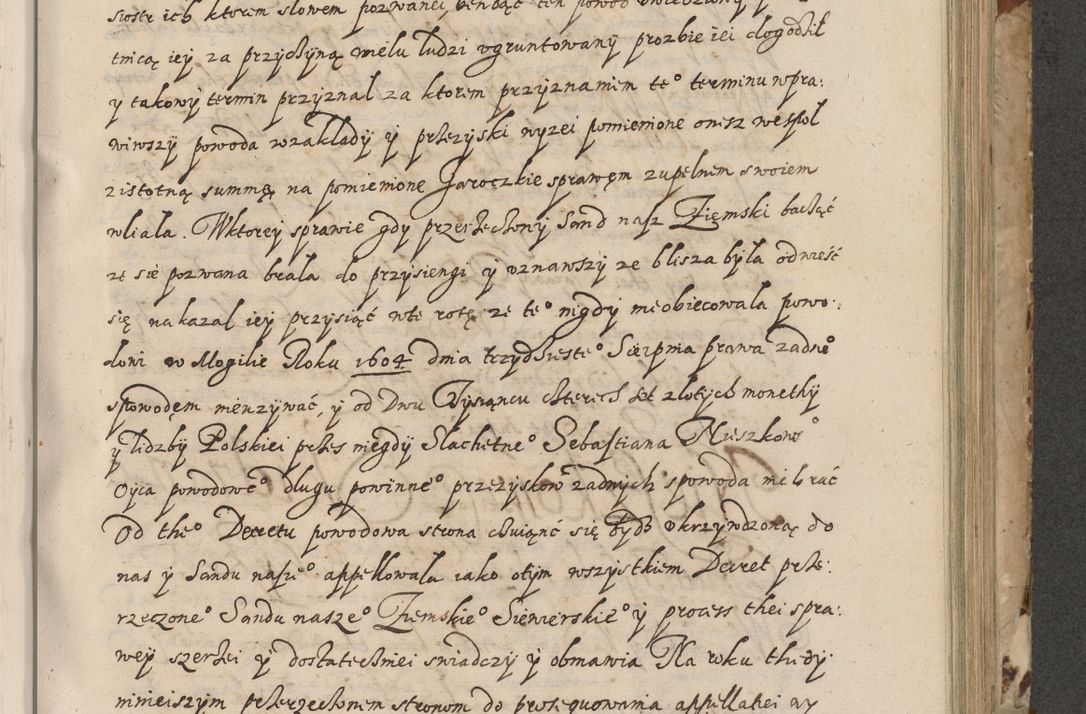 siostr ich ktorem slowem pozwanei, bendąc ten powod
tnicą iey za przyczyną wielu ludzi vgruntowany prozbie iei dogodził
y takowy termin przyznal za ktorem przyznaniem te° terminu wpra:
wiwszy powoda wzaklady y przezyski wyzei pomienione onisz wespol
zistotną summą na pomienione Jaroczkie sprawęm zupelnem swoiem
wliala. Wktorey sprawie gdy przerzeczony Sand nasz Ziemski bacząc
ze sie pozwana brala do przysiengi y vznawszy ze blisza byla odwieść
się nakazal iey przysiąć wte rotę ze te° nigdy nieobiecowala powo:
dowi w Mogilie Roku 1604 dnia trzydzieste° Sierpnia prawa zadne°
spowodęm nieuzywać, y od Dwu Tysiąncu czterech set zlotych monethy
y lidzby Polskiei przes niegdy Slachetne° Sebastiana Mieszkows°
Oyca powodowe° dlugu powinne° przezyskow zadnych spowoda nie brać
Od the° Decretu powodowa strona czuiąnć się bydź vkrzywdzoną do
nas y Sandu nasze° appellowala iako otym wszystkiem Decret prze:
rzeczone° Sandu nasze° Ziemskie° Siewierskie° y process thei spra:
wey szerzei y dostateczniei swiadczy y obmawia Na roku thedy
ninieiszym przerzeczonem stronom do prosequowania appellatiei wy